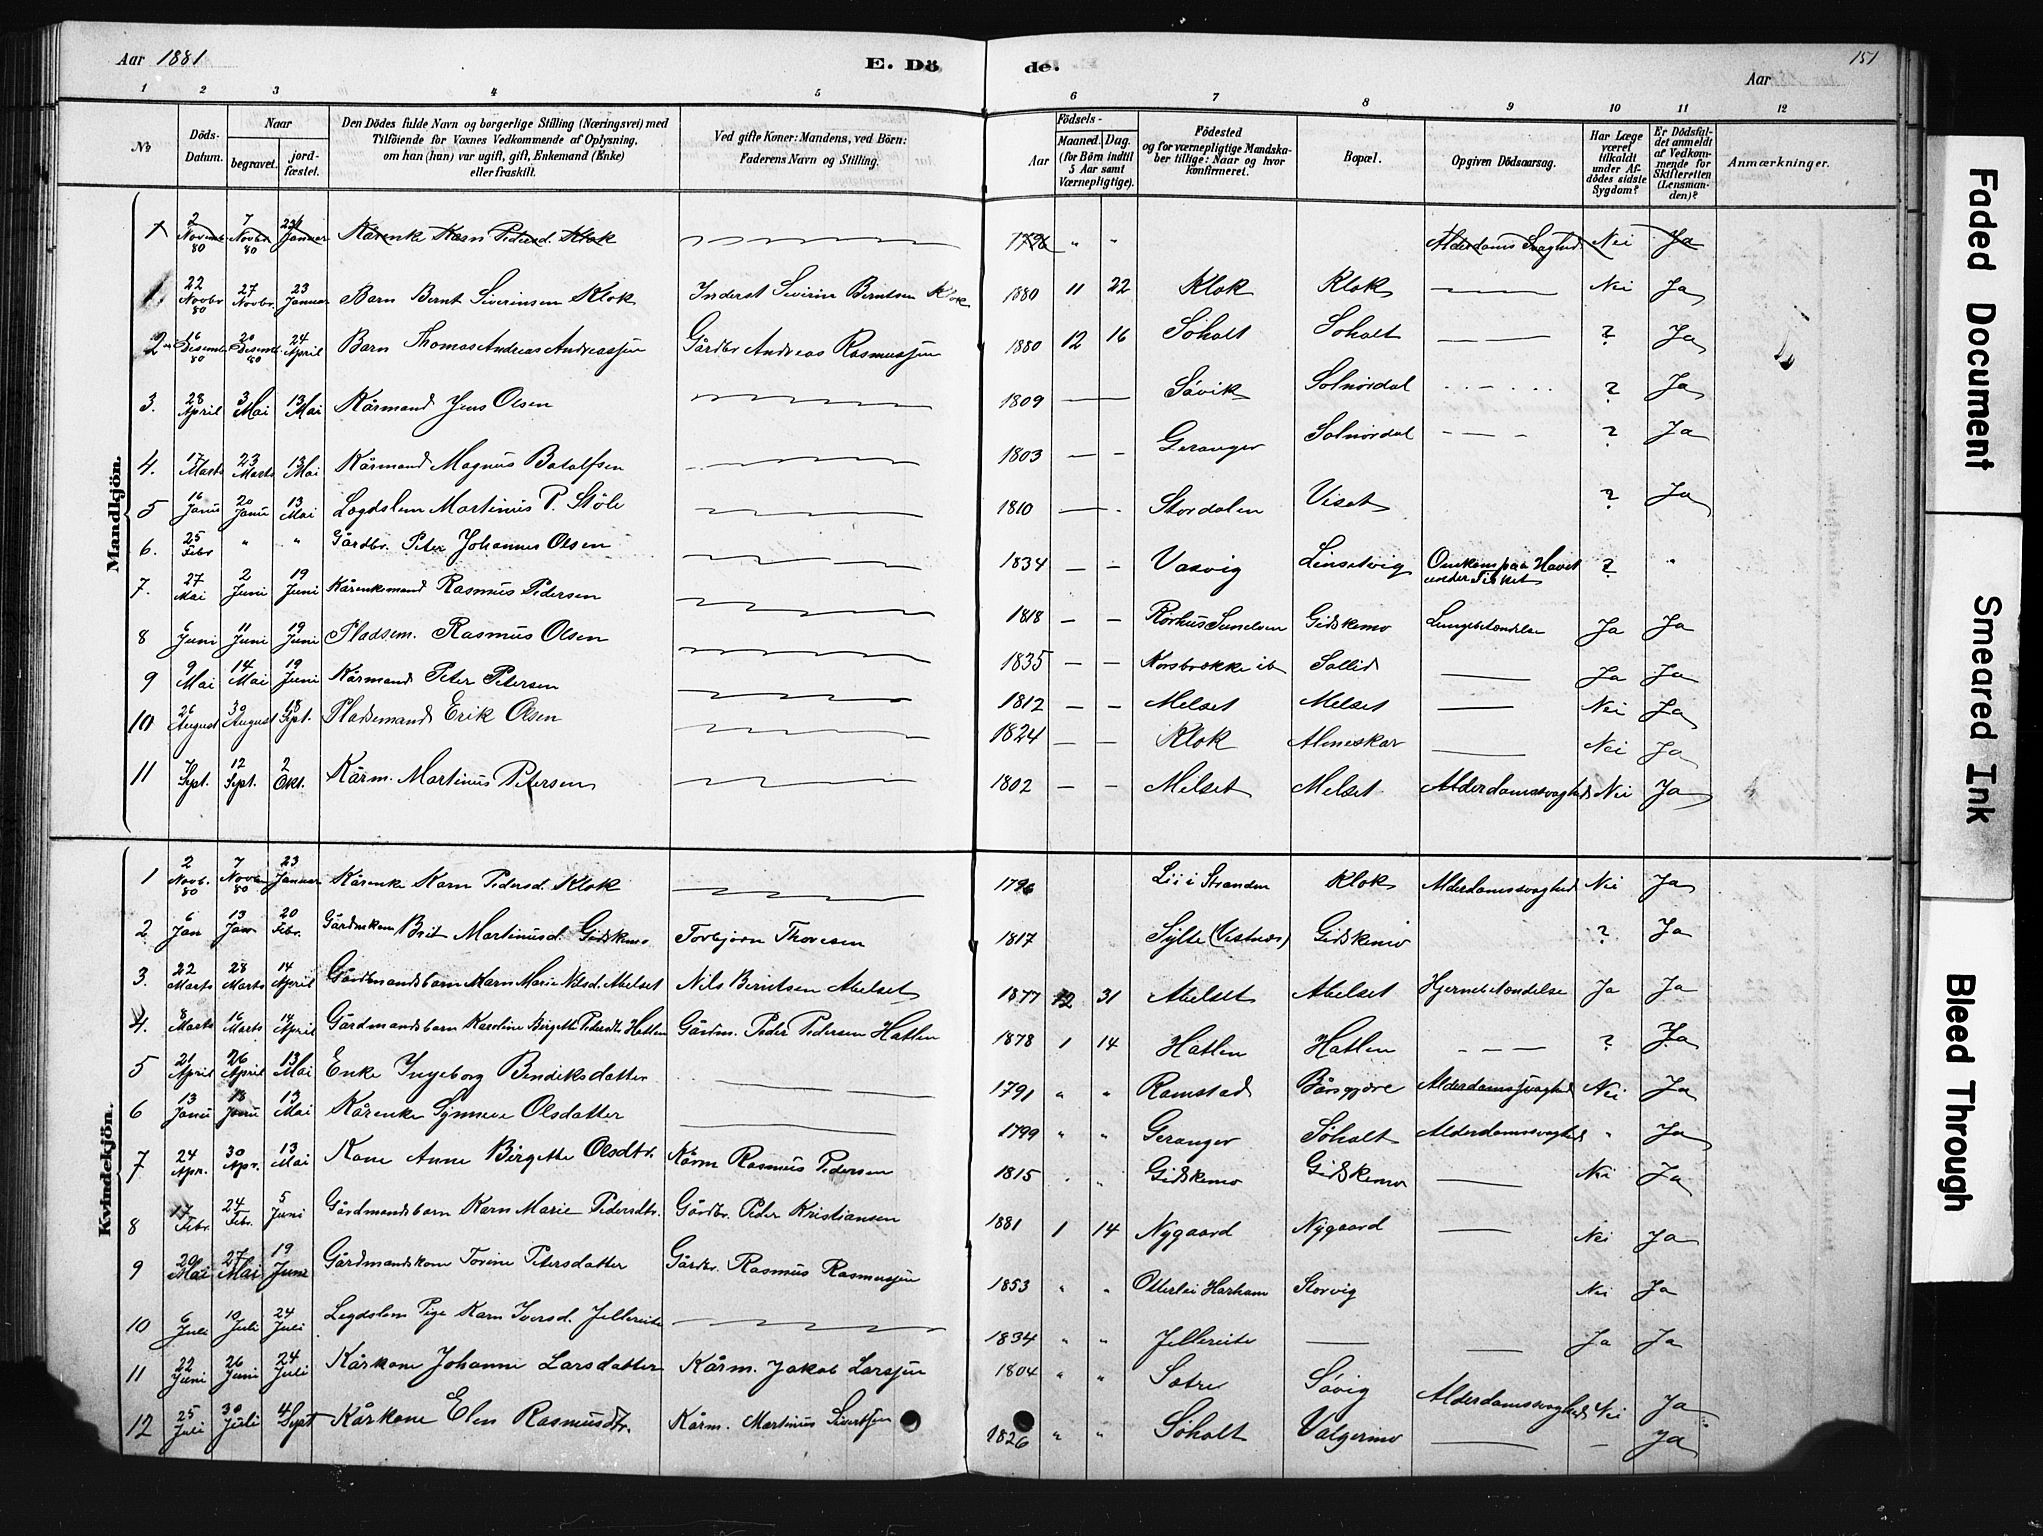 Aar 1881
E. Dö
de.
Aar
151
1 2 3 4 5 6 7 8 9 10 11 12
No
Döds-Datum.
Naar
begravet.
jord-fæstet.
Den Dödes fulde Navn og borgerlige Stilling (Næringsvei) med
Tilföiende for Voxnes Vedkommende af Oplysning,
om han (hun) var ugift, gift, Enkemand (Enke)
eller fraskilt.
Ved gifte Koner: Mandens, ved Börn:
Faderens Navn og Stilling.
Aar
Födsels-
Maaned. Dag.
(for Börn indtil
5 Aar samt
Værnepligtige).
Födested
og for værnepligtige Mandska-
ber tillige: Naar og hvor
konfirmeret.
Bopæl.
Opgiven Dödsaarsag.
Har Læge
været
tilkaldt
under Af-
dödes sidste
Sygdom?
Er Dödsfal-
det anmeldt
af Vedkom-
mende for
Skifteretten
(Lensman-
den)?
Anmærkninger.
Mandkjön.
1 2 Novemb 80 7 Novbr 80 23 Januar Kårenke Karn Pedersd. Klok 1796 " " Alderdoms Svaghed Nei Ja
1 22 Novbr 80 27 Novbr 23 Januar Barn Bernt Siverinsen Klok Inderst Sivirin Berntsen Klok 1880 11 22 Klok Klok Nei Ja
2 16 Desemb 80 20 Desemb. 80 24 April Barn Thomas Andreas Andreassen Gårdbr Andreas Rasmussen 1880 12 16 Söholt Soholt ? Ja
3. 28 April 3 Mai 13 Mai Kårmand Jens Olsen 1809 Sövik Solnørdal ? Ja
4. 17 Marts 23 Marts 13 Mai Kårmand Magnus Botolfsen 1803 Geranger Solnørdal ? Ja
5 16 Janu 20 Janu 13 Mai Logdslem Martinus P. Støle 1810 Stordalen Viset ? Ja
6. 25 Febr " " Gårdbr. Peter Johannes Olsen 1834 Vasvig Linsetvig Omkom paa Havet under Fisket ? "
7. 27 Mai 2 Juni 19 Juni Kårenkemand Rasmus Pedersen 1818 Gidskemo Lungebetændelse Ja Ja
8 6 Juni 11 Juni 19 Juni Pladsem. Rasmus Olsen 1835 Sollid Ja Ja
9 9 Mai 14 Mai 19 Juni Kårmand Peter Petersen 1812 Melset Melset Nei Ja
10 26 August 30 August 18 Sept. Pladsemand Erik Olsen 1824 Klok Nei Ja
11 7 Sept. 12 Sept. 2 Okt. Kårm. Martinus Petersen 1802 Melset Melset Alderdomssvaghed Nei Ja
Kvindekjön.
1 2 Novb. 80 7 Novbr 80 23 Januar Kårenke Karn Pedersd. Klok 1796 Lii i Stranden Klok Alderdomssvaghed Nei Ja
2 6 Jan 13 Jan 20 Febr. Gårdmkone Brit Martinusd. Gidskemo Torbjørn Thoresen 1817 Sylte (Vestnæs) Gidskemo ? Ja
3. 22 Marts 28 Marts 14 April Gårdmandsbarn Karn Marie Nilsd. Abelset Nils Berntsen Abelset 1877 12 31 Abelset Abelset Hjernebetændelse Ja Ja
4. 8 Marts 16 Marts 14 April Gårdmandsbarn Karoline Birgitte Pedersdtr Hatlen Gårdm. Peder Pedersen Hatlen 1878 1 14 Hatlen Hatlen ? Ja
5 21 April 26 April 13 Mai Enke Ingeborg Bendiksdatter 1791 " " Ramstad Alderdomssvaghed Nei Ja
6 13 Janu 18 Janu 13 Mai Kårenke Synneve Olsdatter 1799 " " Geranger Söholt Alderdomssvaghed " Ja
7 24 Apr. 30 Apr. 13 Mai Kone Anne Birgitte Olsdtr. Kårm Rasmus Pedersen 1815 " " Gidskemo Gidskemo Nei Ja
8 17 Febr. 24 Febr. 5 Juni Gårdmandsbarn Karn Marie Pedersdtr. Gårdbr. Peder Kristiansen 1881 1 14 Nygaard Nygaard Nei Ja
9 20 Mai 27 Mai 19 Juni Gårdmandskone Torine Petersdatter Gårdbr. Rasmus Rasmussen 1853 " " Otterlei Harham Storvig Nei Ja
10 6 Juli 10 Juli 24 Juli Legdslem Pige Karn Iversd. Jellereite 1834 " " Jellereite Ja Ja
11 22 Juni 26 Juni 24 Juli Kårkone Johanne Larsdatter Kårm. Jakob Larssen 1804 " " Sætre Søvig Alderdomssvaghed Nei Ja
12 25 Juli 30 Juli 4 Sept Kårkone Elen Rasmusdtr. Kårm. Martinus Sivertsen 1826 " " Söholt Valgermo Ja
Faded Document
Smeared Ink
Bleed Through